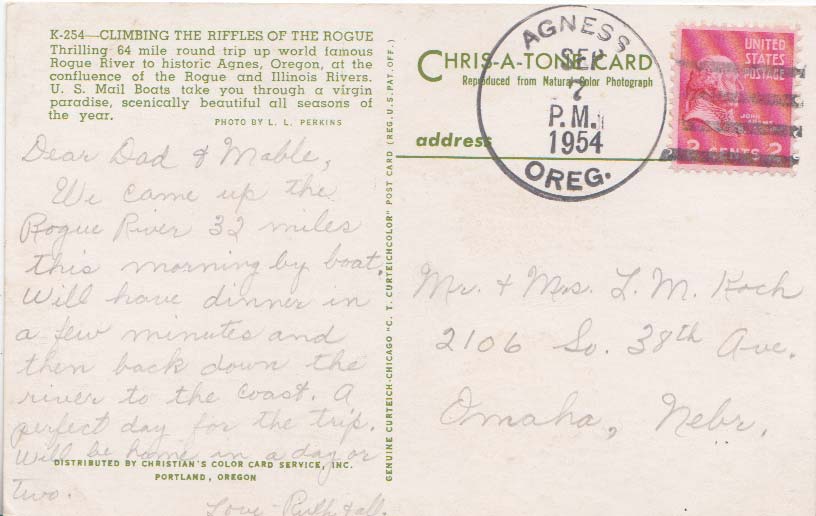 K-254—CLIMBING THE RIFFLES OF THE ROGUE
Thrilling 64 mile round trip up world famous
Rogue River to historic Agnes, Oregon, at the
confluence of the Rogue and Illinois Rivers.
U. S. Mail Boats take you through a virgin
paradise, scenically beautiful all seasons of
the year.
PHOTO BY L. L. PERKINS
Dear Dad & Mable,
We came up the
Rogue River 32 miles
this morning by boat,
Will have dinner in
a few minutes and
then back down the
river to the Coast. A
perfect day for the trip.
Will be home in a day or
two.
Love - Ruth & all.
DISTRIBUTED BY CHRISTIAN'S COLOR CARD SERVICE, INC.
PORTLAND, OREGON
GENUINE CURTEICH-CHICAGO "C. T. CURTEICHCOLOR" POST CARD (REG. U.S. PAT. OFF.)
CHRIS-A-TONE CARD
Reproduced from Natural Color Photograph
address
AGNESS
SEP
7
P.M.
1954
OREG.
UNITED
STATES
POSTAGE
JOHN
2 CENTS 2
Mr. + Mrs. L. M. Koch
2106 So. 38th Ave.
Omaha, Nebr.